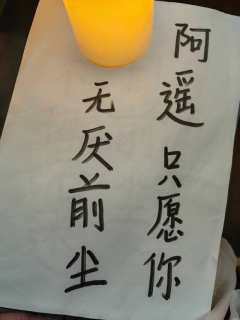 阿遥只愿你
无厌前尘